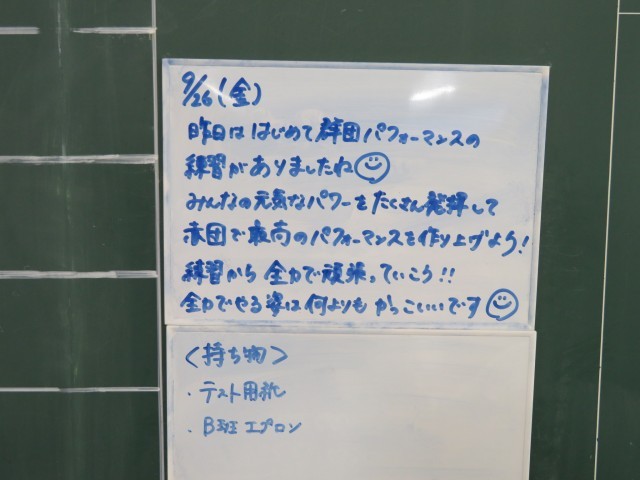 9/26(金)
昨日は はじめて 群団パフォーマンスの
練習がありましたね
みんなの元気なパワーをたくさん発揮して
赤団で最高のパフォーマンスを作り上げよう!
練習から 全力で頑張っていこう!!
全力でやる姿は何よりも かっこいいです
〈持ち物〉
・テスト用紙
・B班 エプロン